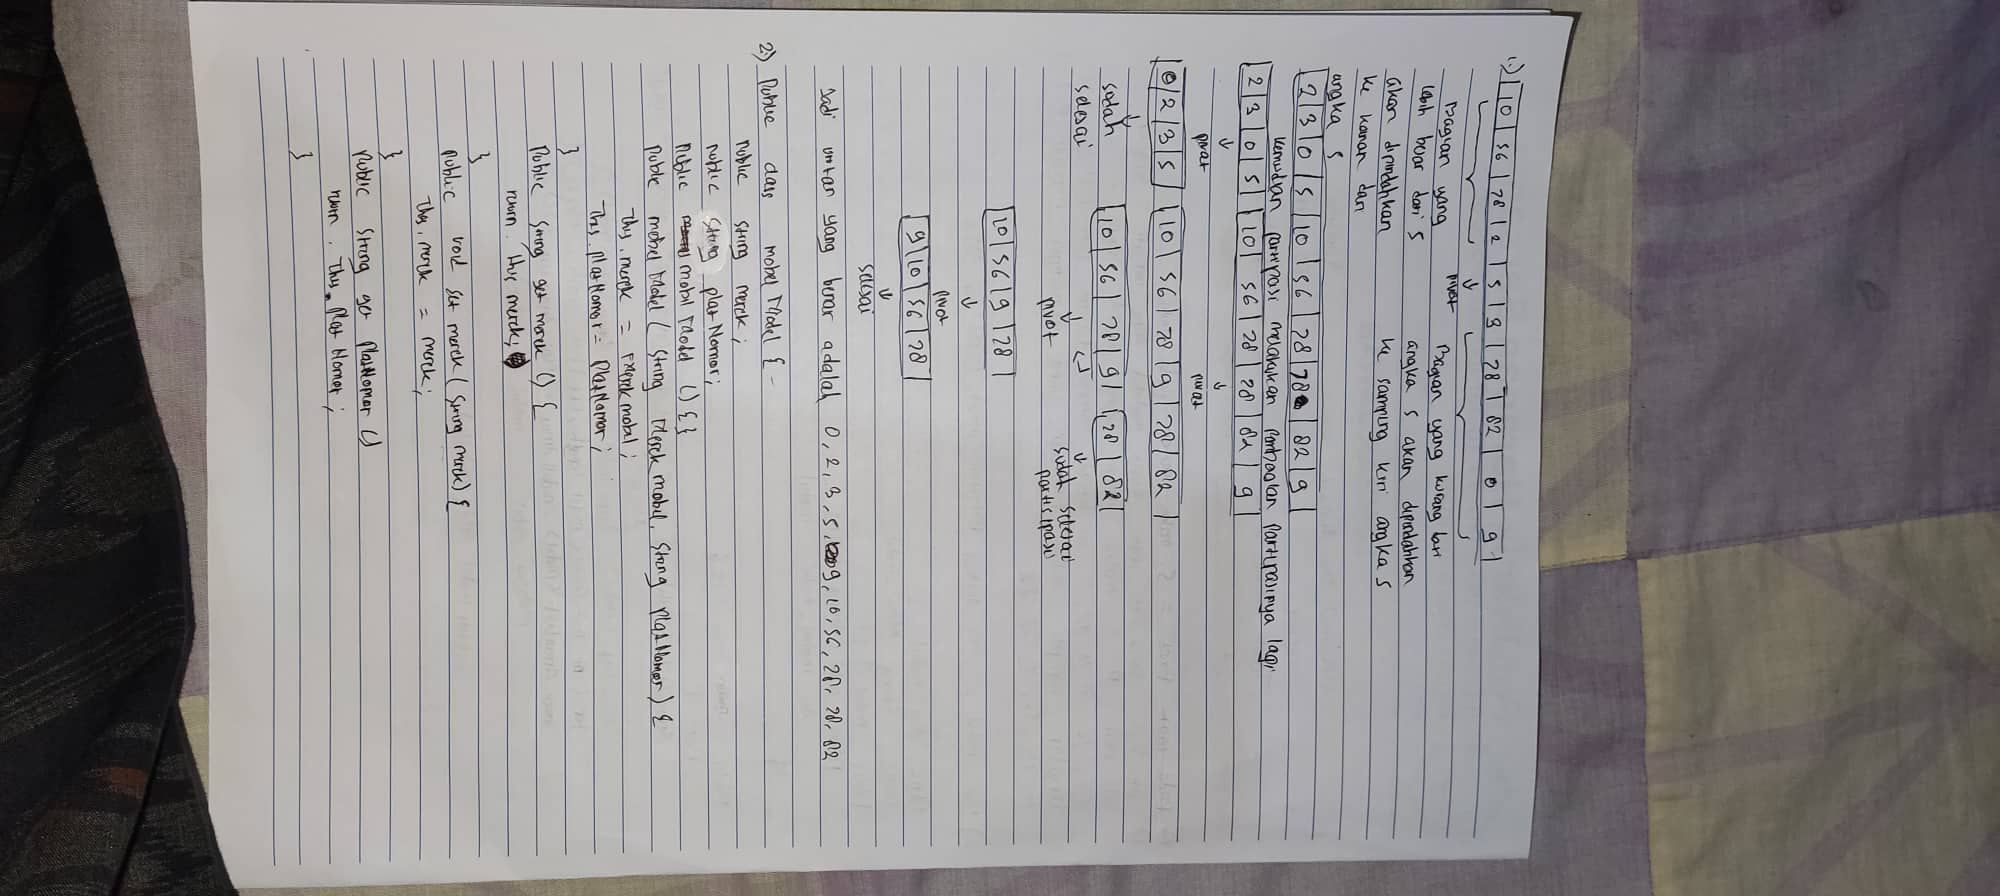 1.) | 10 | 56 | 28 | 2 | 5 | 3 | 28 | 82 | 0 | 9 |
pivot
Bagian yang Bagian yang kurang dari
lebih besar dari 5 angka 5 akan dipindahkan
akan dipindahkan ke samping kiri angka 5
ke kanan dari
angka 5
| 2 | 3 | 0 | 5 | 10 | 56 | 28 | 78 | 82 | 9 |
kemudian partisipasi melakukan pembagian partisipasinya lagi
| 2 | 3 | 0 | 5 | 10 | 56 | 28 | 28 | 82 | 9 |
pivot pivot
| 0 | 2 | 3 | 5 | 10 | 56 | 28 | 9 | 28 | 82 |
sudah | 10 | 56 | 28 | 9 | 28 | 82 |
selesai
pivot sudah selesai
partisipasi
| 10 | 56 | 9 | 28 |
pivot
| 9 | 10 | 56 | 28 |
selesai
Jadi urutan yang benar adalah 0, 2, 3, 5, 9, 10, 56, 28, 28, 82
2.) Public class mobel Model {
public string merek;
public string plat Nomor;
Public mobil Model () { }
Public mobel Model ( string Merek mobel, string platNomor) {
This. merek = merek mobel;
This. platNomor = PlatNomor;
}
Public string get merek () {
return. this merek;
}
public void set merek ( string merek) {
This. merek = merek;
}
Public string get platNomor ()
return. This. plat Nomor;
}